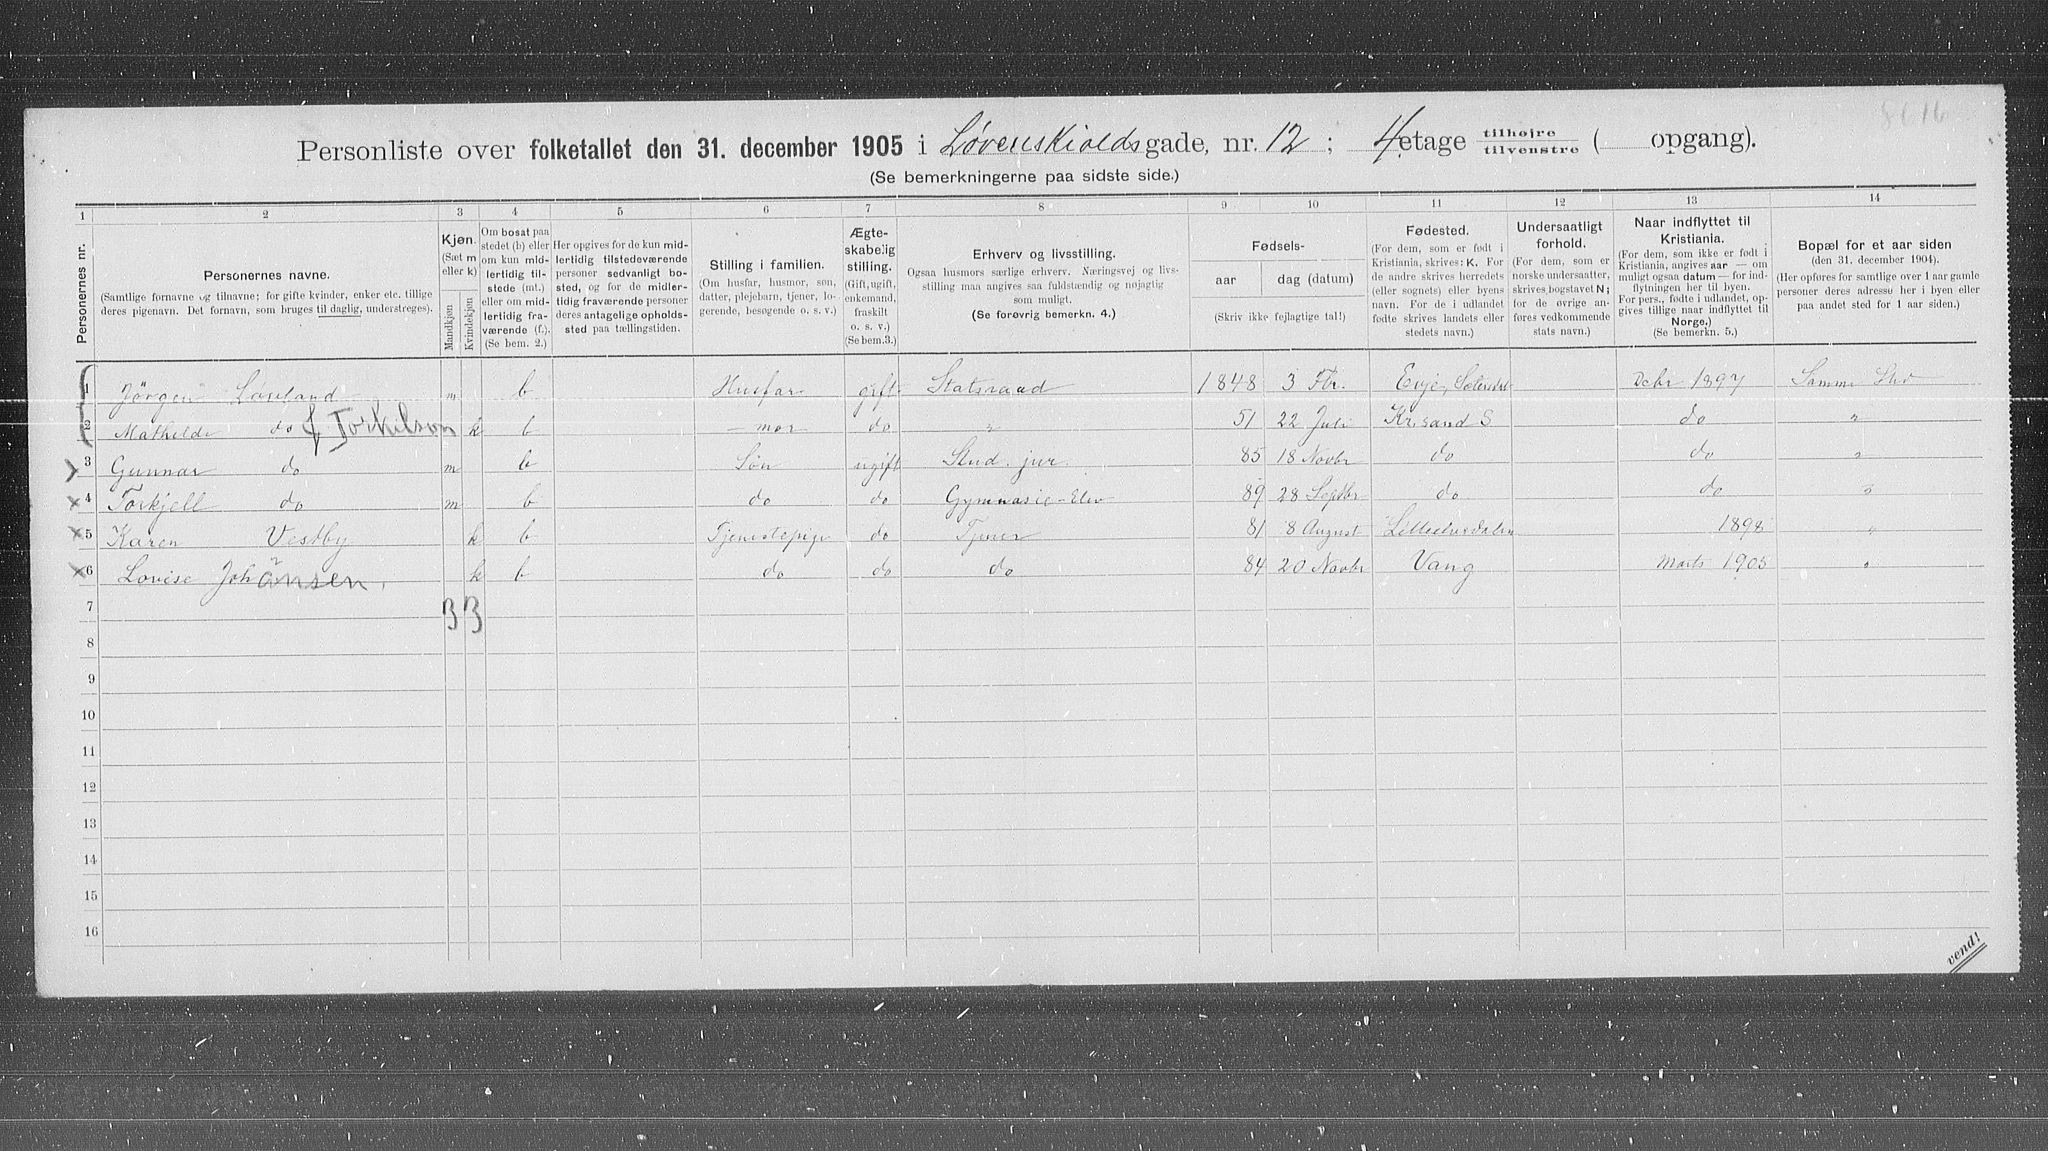 8616
Personliste over folketallet den 31. december 1905 i Løvenskioldsgade, nr. 12; 4 etage tilhøjre / tilvenstre ( opgang).
(Se bemerkningerne paa sidste side.)
1 2 3 4 5 6 7 8 9 10 11 12 13 14
Personernes nr.
Personernes navne.
(Samtlige fornavne og tilnavne; for gifte kvinder, enker etc. tillige
deres pigenavn. Det fornavn, som bruges til daglig, understreges).
Kjøn.
(Sæt m
eller k)
Mandkjøn
Kvindekjøn
Om bosat paa
stedet (b) eller
om kun mid-
lertidig til-
stede (mt.)
eller om mid-
lertidig fra-
værende (f.).
(Se bem. 2.)
Her opgives for de kun mid-
lertidig tilstedeværende
personer sedvanlig bo-
sted, og for de midler-
tidig fraværende personer
deres antagelige opholds-
sted paa tællingstiden.
Stilling i familien.
(Om husfar, husmor, søn,
datter, plejebarn, tjener, lo-
gerende, besøgende o. s. v.)
Ægte-
skabelig
stilling.
(Gift, ugift,
enkemand,
fraskilt
o. s. v.)
(Se bem.3.)
Erhverv og livsstilling.
Ogsaa husmors særlige erhverv. Næringsvej og livs-
stilling maa angives saa fuldstændig og nøjagtig
som muligt.
(Se forøvrig bemerkn. 4.)
Fødsels-
aar
dag (datum)
(Skriv ikke fejlagtige tal!)
Fødested.
(For dem, som er født i
Kristiania, skrives: K. For
de andre skrives herredets
(eller sognets) eller byens
navn. For de i udlandet
fødte skrives landets eller
stedets navn.)
Undersaatligt
forhold.
(For dem, som er
norske undersaatter,
skrives bogstavet N;
for de øvrige an-
føres vedkommende
stats navn.)
Naar indflyttet til
Kristiania.
(For dem, som ikke er født i
Kristiania, angives aar — om
muligt ogsaa datum — for ind-
flytningen her til byen.
For pers., fødte i udlandet, op-
gives tillige naar indflyttet til
Norge.)
(Se bemerkn. 5.)
Bopæl for et aar siden
(den 31. december 1904).
(Her opføres for samtlige over 1 aar gamle
personer deres adresse her i byen eller
paa andet sted for 1 aar siden.)
1 Jörgen Løvland m b Husfar gift Statsraad 1848 3 Fbr. Evje, Sætersdal Debr 1897 Samme Sted
2 Mathilde do f Torkelsen k b — mor do " 51 22 Juli Kr.sand S do "
3 Gunnar do m b Søn ugift Stud. jur. 85 18 Novbr do do "
4 Torkjell do m b do do Gymnasie-Elev 89 28 Septbr do do "
5 Karen Vestby k b Tjenestepige do Tjener 81 8 August Lilleelvedalen 1898 "
6 Lovise Johansen, k b do do do 84 20 Novbr Vang Marts 1905 "
7 3 3
8
9
10
11
12
13
14
15
16
vend!